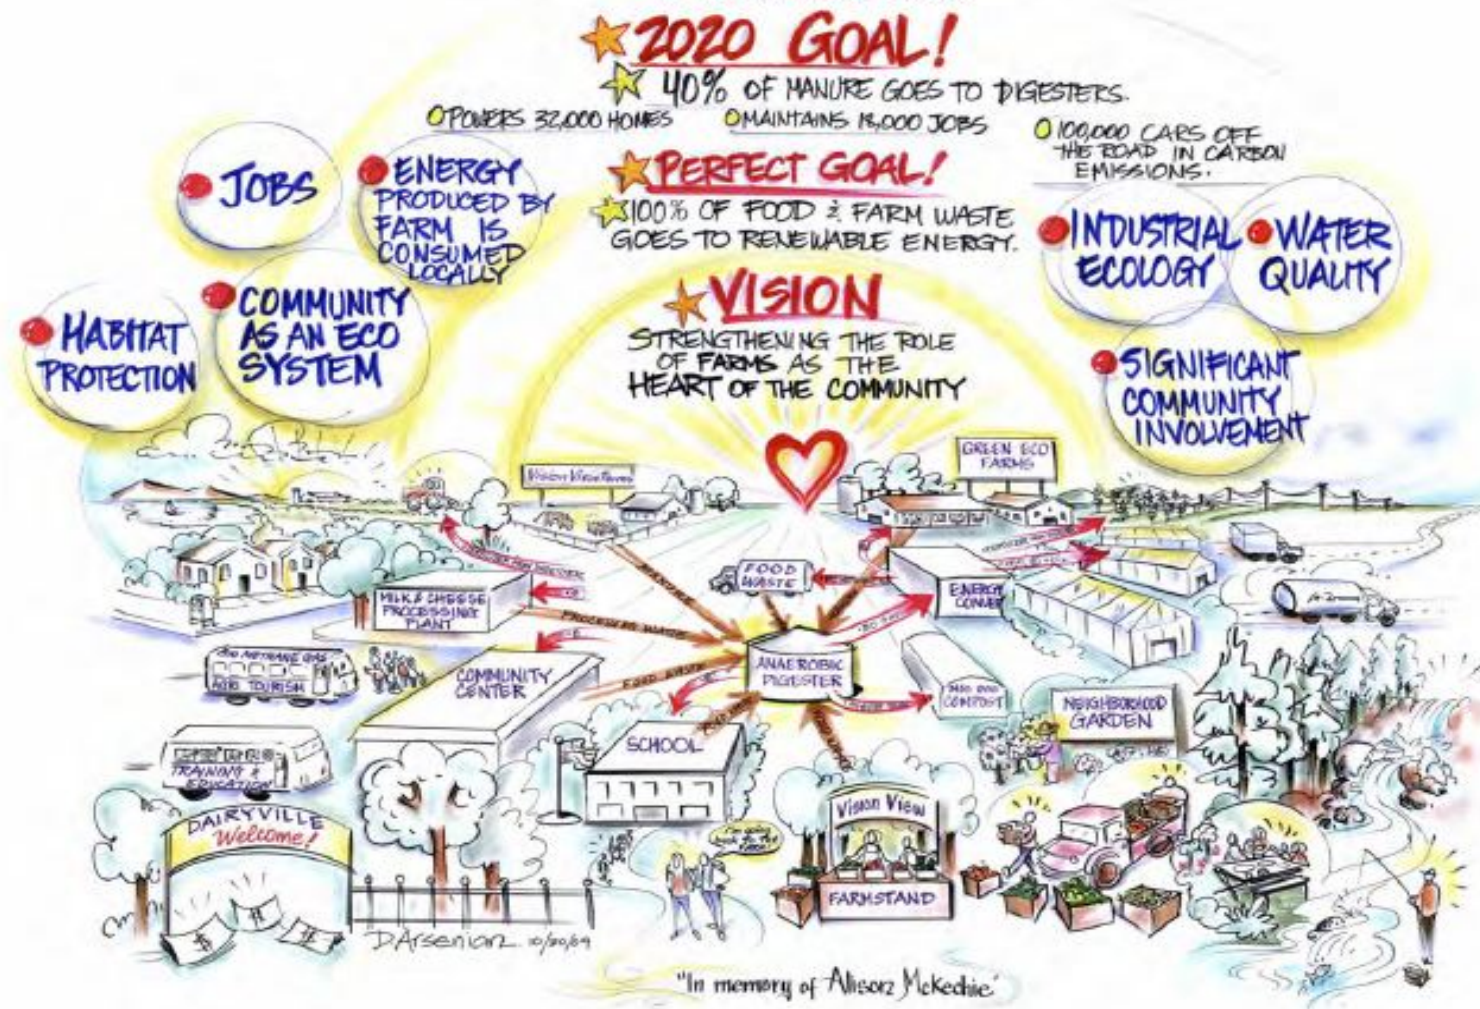 2020 GOAL!
40% OF MANURE GOES TO DIGESTERS.
POWERS 32,000 HOMES
MAINTAINS 18,000 JOBS
100,000 CARS OFF
THE ROAD IN CARBON
EMISSIONS.
PERFECT GOAL!
100% OF FOOD & FARM WASTE
GOES TO RENEWABLE ENERGY.
VISION
STRENGTHENING THE ROLE
OF FARMS AS THE
HEART OF THE COMMUNITY
JOBS
ENERGY
PRODUCED BY
FARM IS
CONSUMED
LOCALLY
HABITAT
PROTECTION
COMMUNITY
AS AN ECO
SYSTEM
INDUSTRIAL
ECOLOGY
WATER
QUALITY
SIGNIFICANT
COMMUNITY
INVOLVEMENT
Vision View Farms
GREEN ECO
FARMS
MILK & CHEESE
PROCESSING
PLANT
MANURE
FOOD
WASTE
PROCESS WASTE
ENERGY
ANAEROBIC
DIGESTER
FOOD WASTE
METHANE GAS
AGRI TOURISM
COMMUNITY
CENTER
COMPOST
NEIGHBORHOOD
GARDEN
SCHOOL
TRAINING &
EDUCATION
DAIRYVILLE
Welcome!
$ $ $
I'm going
back to the
farm!
Vision View
FARMSTAND
D. Arsenian 10/20/09
"In memory of Alison McKechie"